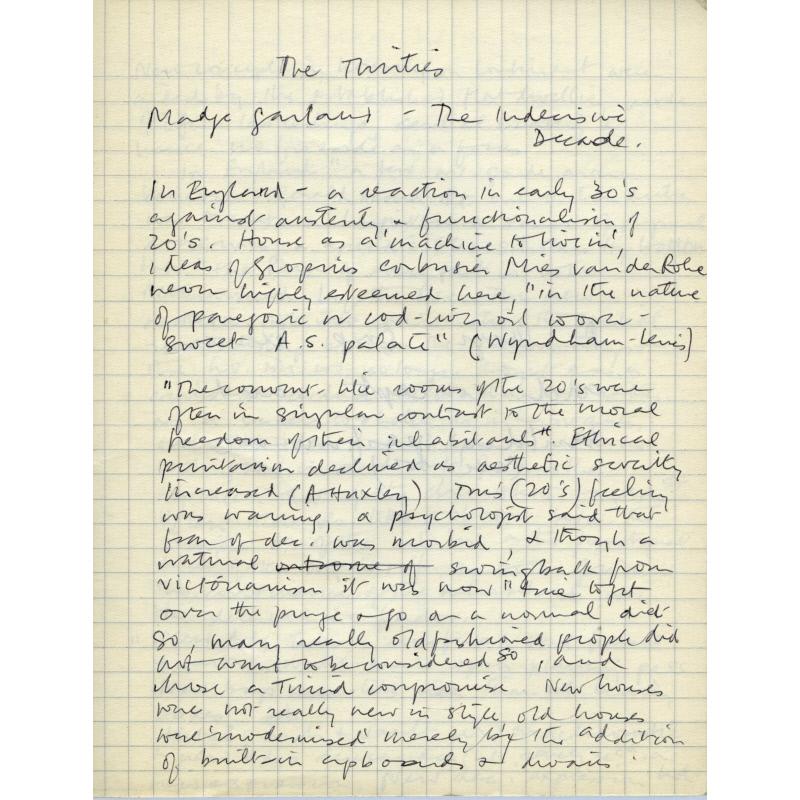 The Thirties
Madge Garland - The Indecisive
Decade.
In England - a reaction in early 30's
against austerity & functionalism of
20's. House as a 'machine to live in',
ideas of Gropius Corbusier Mies van der Rohe
never highly esteemed here, "in the nature
of paregoric or cod-liver oil to over-
sweet A.S. palate" (Wyndham-Lewis)
"The convent-like rooms of the 20's were
often in singular contrast to the moral
freedom of their inhabitants". Ethical
puritanism declined as aesthetic severity
increased (A Huxley) This (20's) feeling
was waning, a psychologist said that
fear of dec: was morbid, & though a
natural outcome of swingback from
victorianism it was now "time to get
over the purge & go on a normal diet
So, many really oldfashioned people did
not want to be considered so, and
chose a timid compromise New houses
were not really new in style, old houses
were 'modernised' merely by the addition
of built-in cupboards & divans.